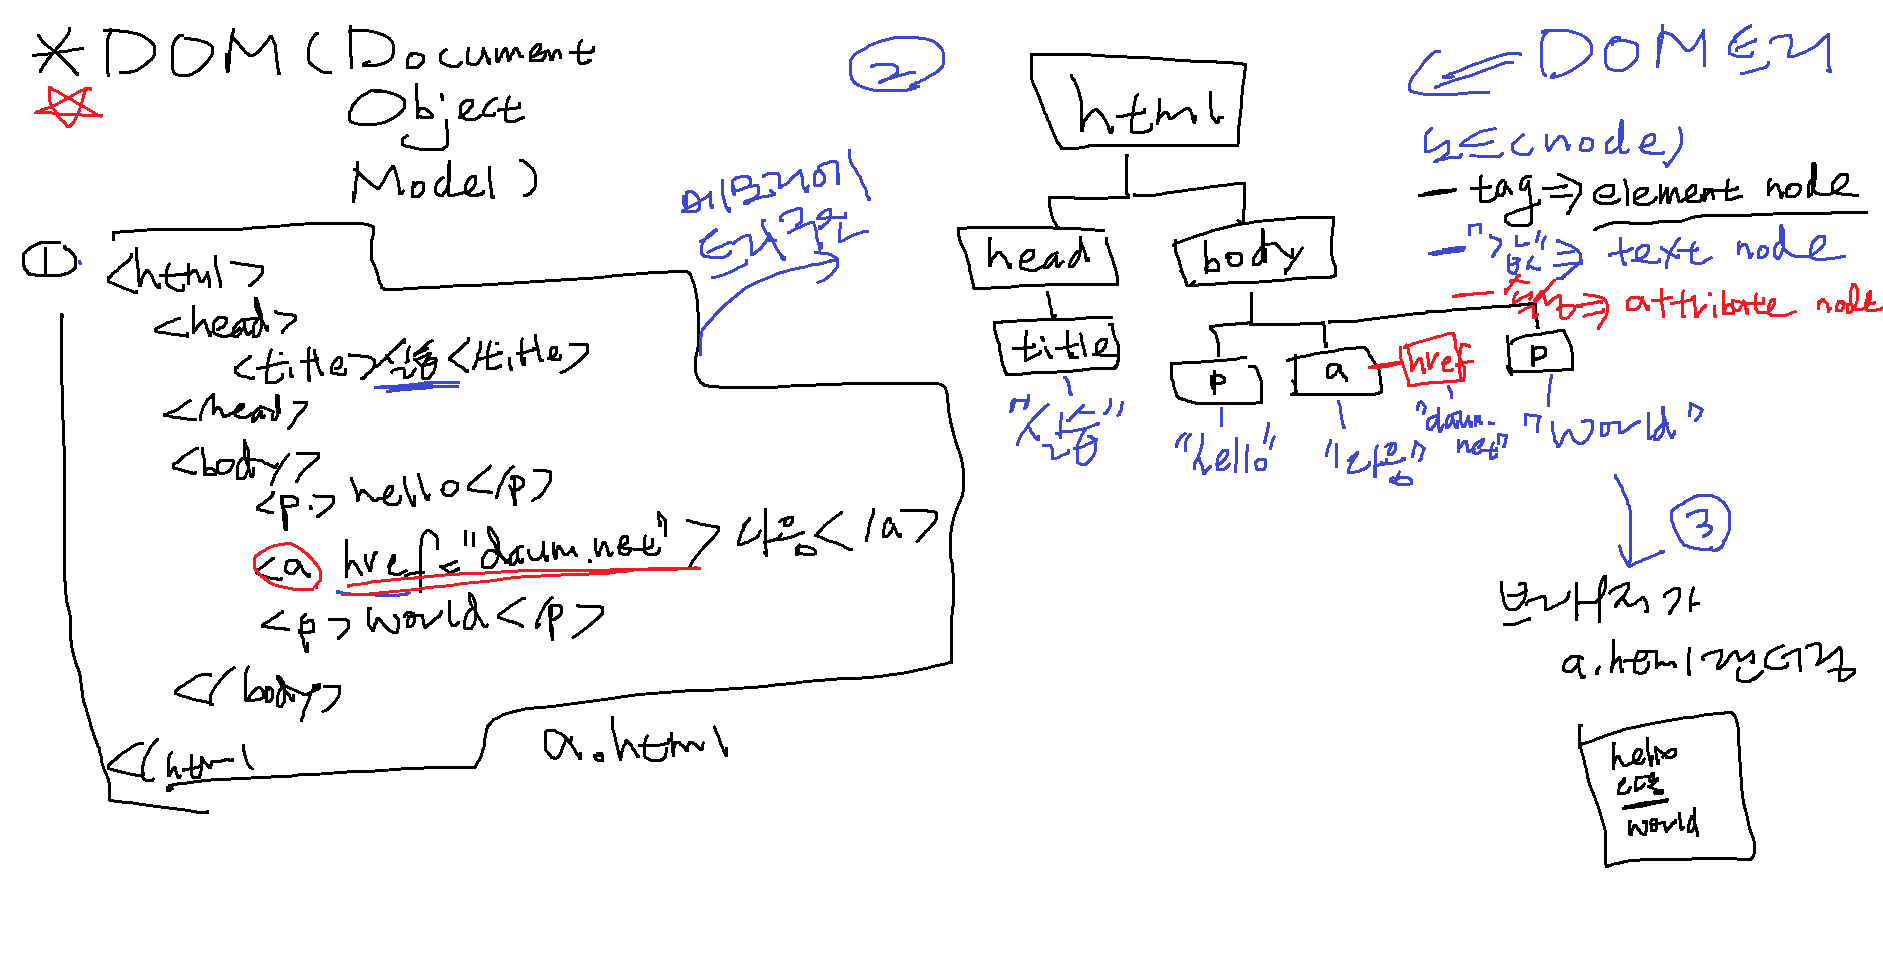 * DOM (Document
Object
Model)
①
<html>
<head>
<title>샘플</title>
<head>
<body>
<p>hello</p>
<a href="daum.net">다음</a>
<p>world</p>
</body>
</html
a.html
메모리에
트리구조
②
html
head
body
title
p
a
href
p
"샘플"
"hello"
"다음"
"daum.
net"
"world"
DOM트리
노드(node)
- tag => element node
=> text node
=> attribute node
③
브라우저가
a.html 렌더링
hello
다음
world